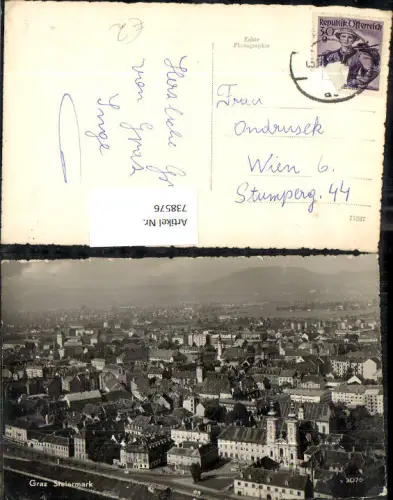 Echte
Photographie
Republik Österreich
30 g
Herzliche Gr
von Graz
Inge
Frau
Ondrusek
Wien 6.
Stumperg. 44
Artikel Nr.
738576
Graz Steiermark